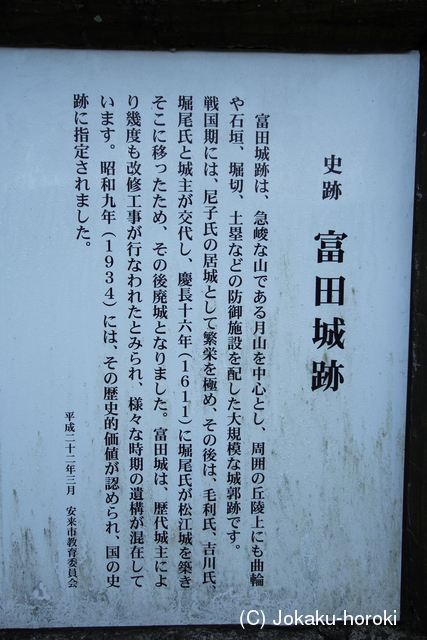 史跡 富田城跡
富田城跡は、急峻な山である月山を中心とし、周囲の丘陵上にも曲輪
や石垣、堀切、土塁などの防御施設を配した大規模な城郭跡です。
戦国期には、尼子氏の居城として繁栄を極め、その後は、毛利氏、吉川氏、
堀尾氏と城主が交代し、慶長十六年(1611)に堀尾氏が松江城を築き
そこに移ったため、その後廃城となりました。富田城は、歴代城主によ
り幾度も改修工事が行なわれたとみられ、様々な時期の遺構が混在して
います。昭和九年(1934)には、その歴史的価値が認められ、国の史
跡に指定されました。
平成二十二年三月 安来市教育委員会
(C) Jokaku-horoki